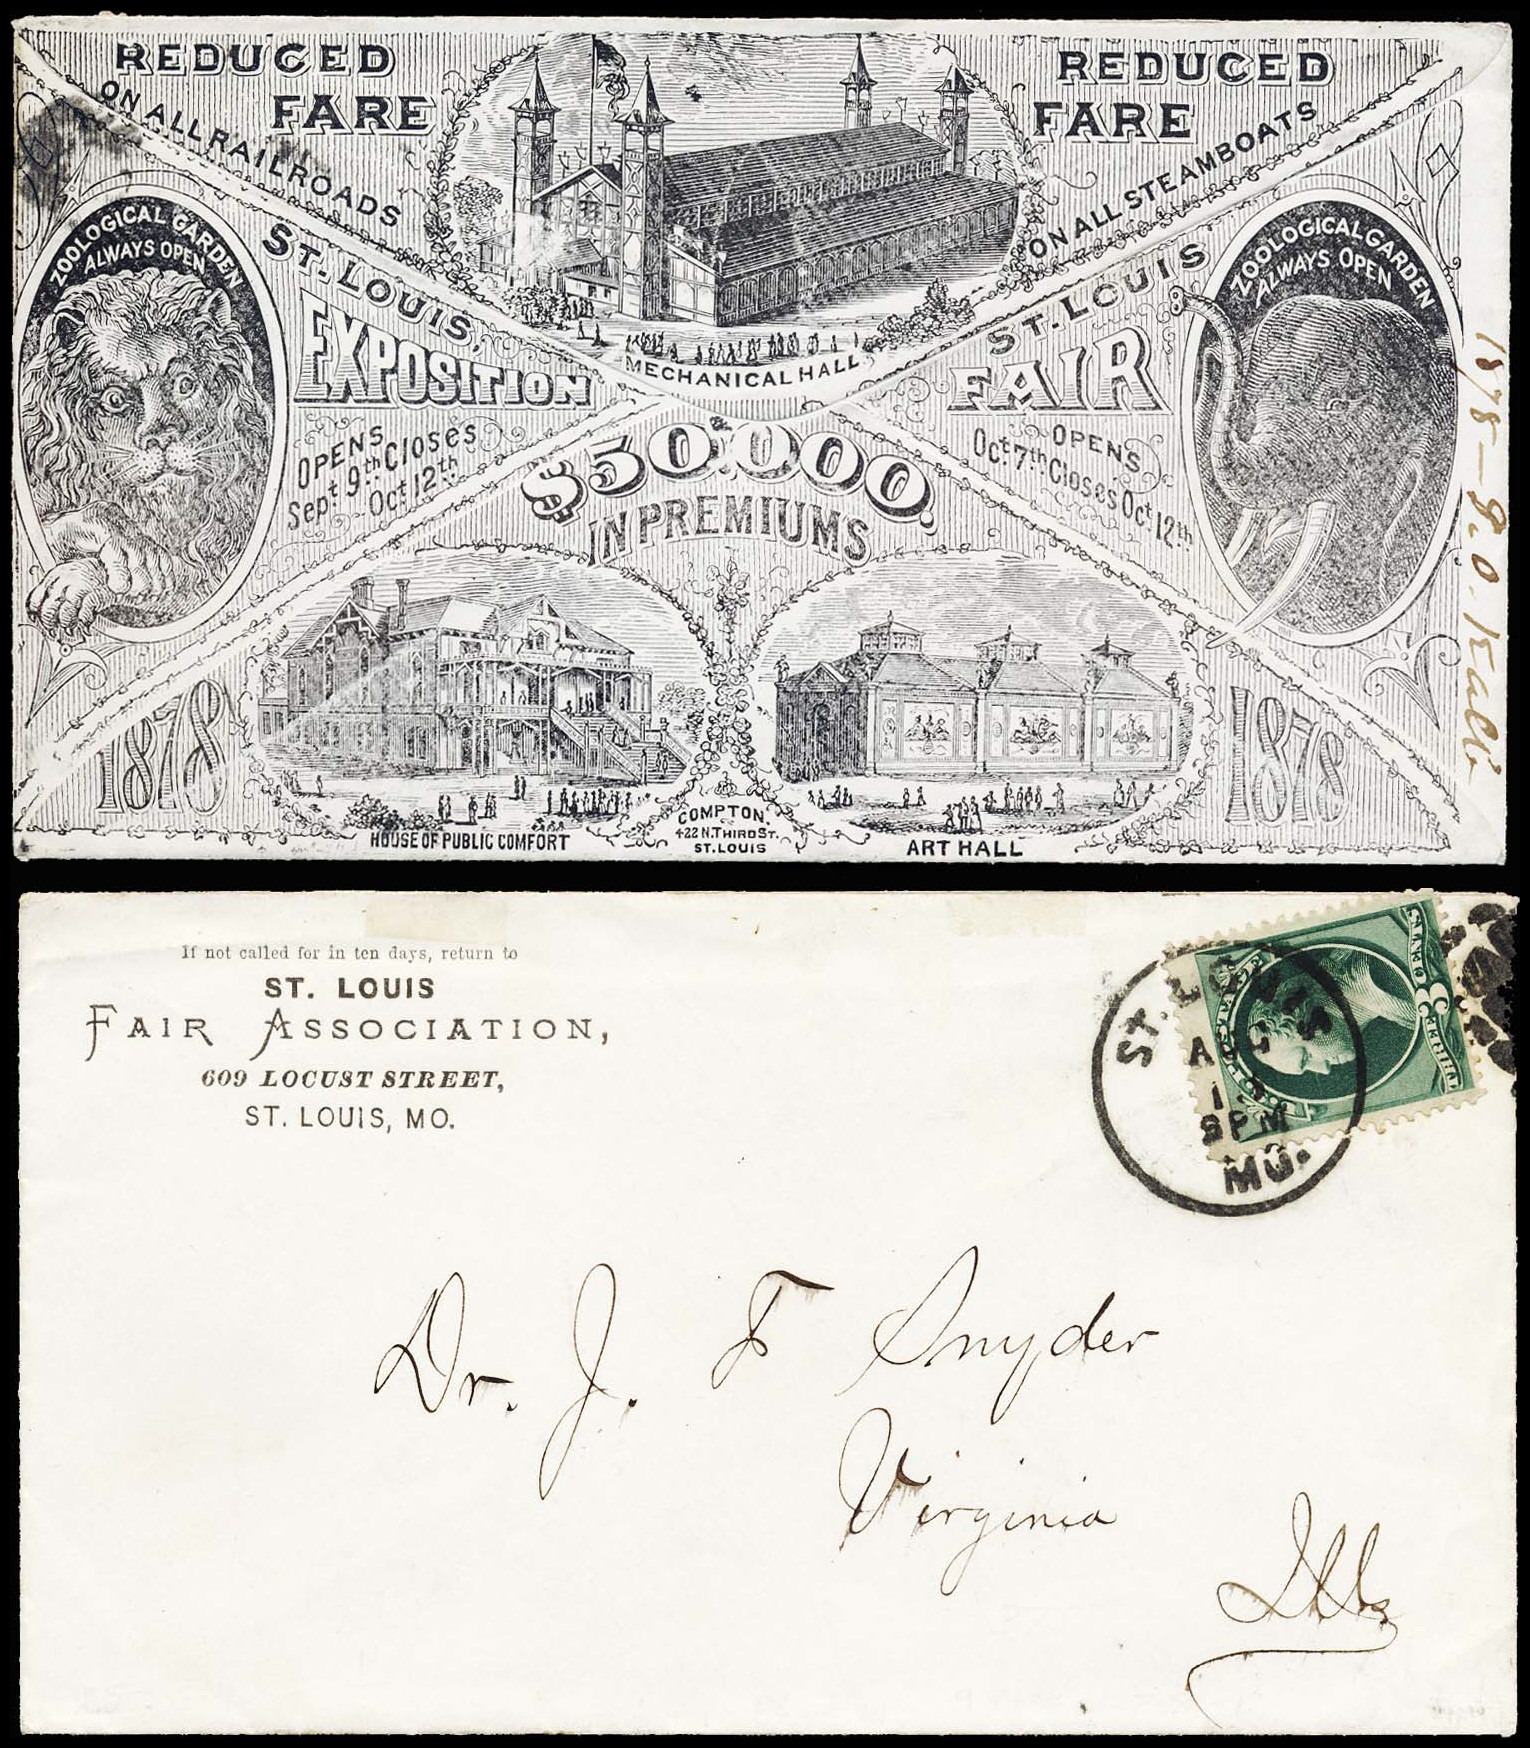 REDUCED
FARE
ON ALL RAILROADS
REDUCED
FARE
ON ALL STEAMBOATS
MECHANICAL HALL
ZOOLOGICAL GARDEN
ALWAYS OPEN
ST. LOUIS,
EXPOSITION
OPENS
Sept 9th Closes
Oct 12th
ST. LOUIS
FAIR
OPENS
Oct. 7th Closes Oct 12th
ZOOLOGICAL GARDEN
ALWAYS OPEN
$50,000.
IN PREMIUMS
1878
1878
HOUSE OF PUBLIC COMFORT
COMPTON.
422 N. THIRD ST.
ST. LOUIS
ART HALL
1878
If not called for in ten days, return to
ST. LOUIS
FAIR ASSOCIATION,
609 LOCUST STREET,
ST. LOUIS, MO.
ST. LOUIS
AUG
8 PM
MO.
U.S. POSTAGE
THREE 3 CENTS
Dr. J. F Snyder
Virginia
Ills